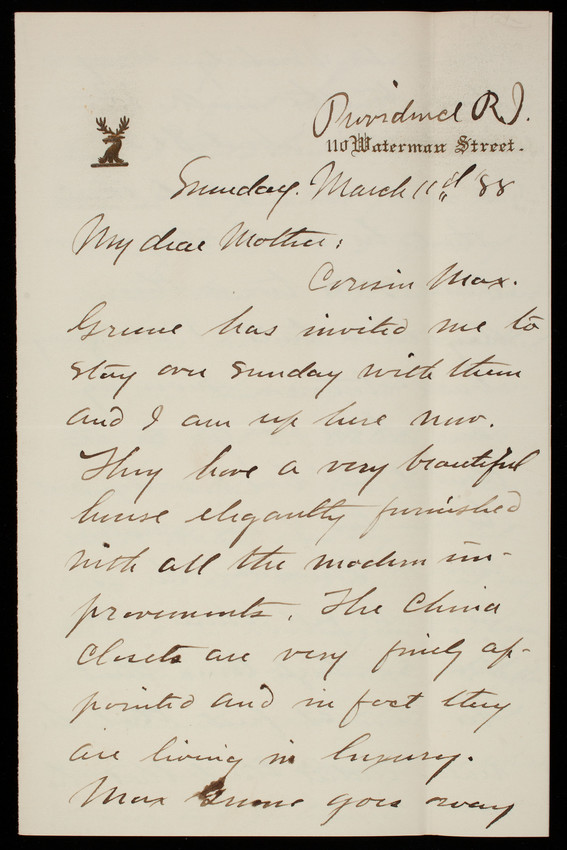 Providence R.I.
110 Waterman Street.
Sunday. March 11d '88
My dear Mother;
Cousin Max.
Greene has invited me to
stay over Sunday with them
and I am up here now.
They have a very beautiful
house elegantly furnished
with all the modern im-
provements. The China
Closets are very finely ap-
pointed and in fact they
are living in luxury.
Max Greene goes away